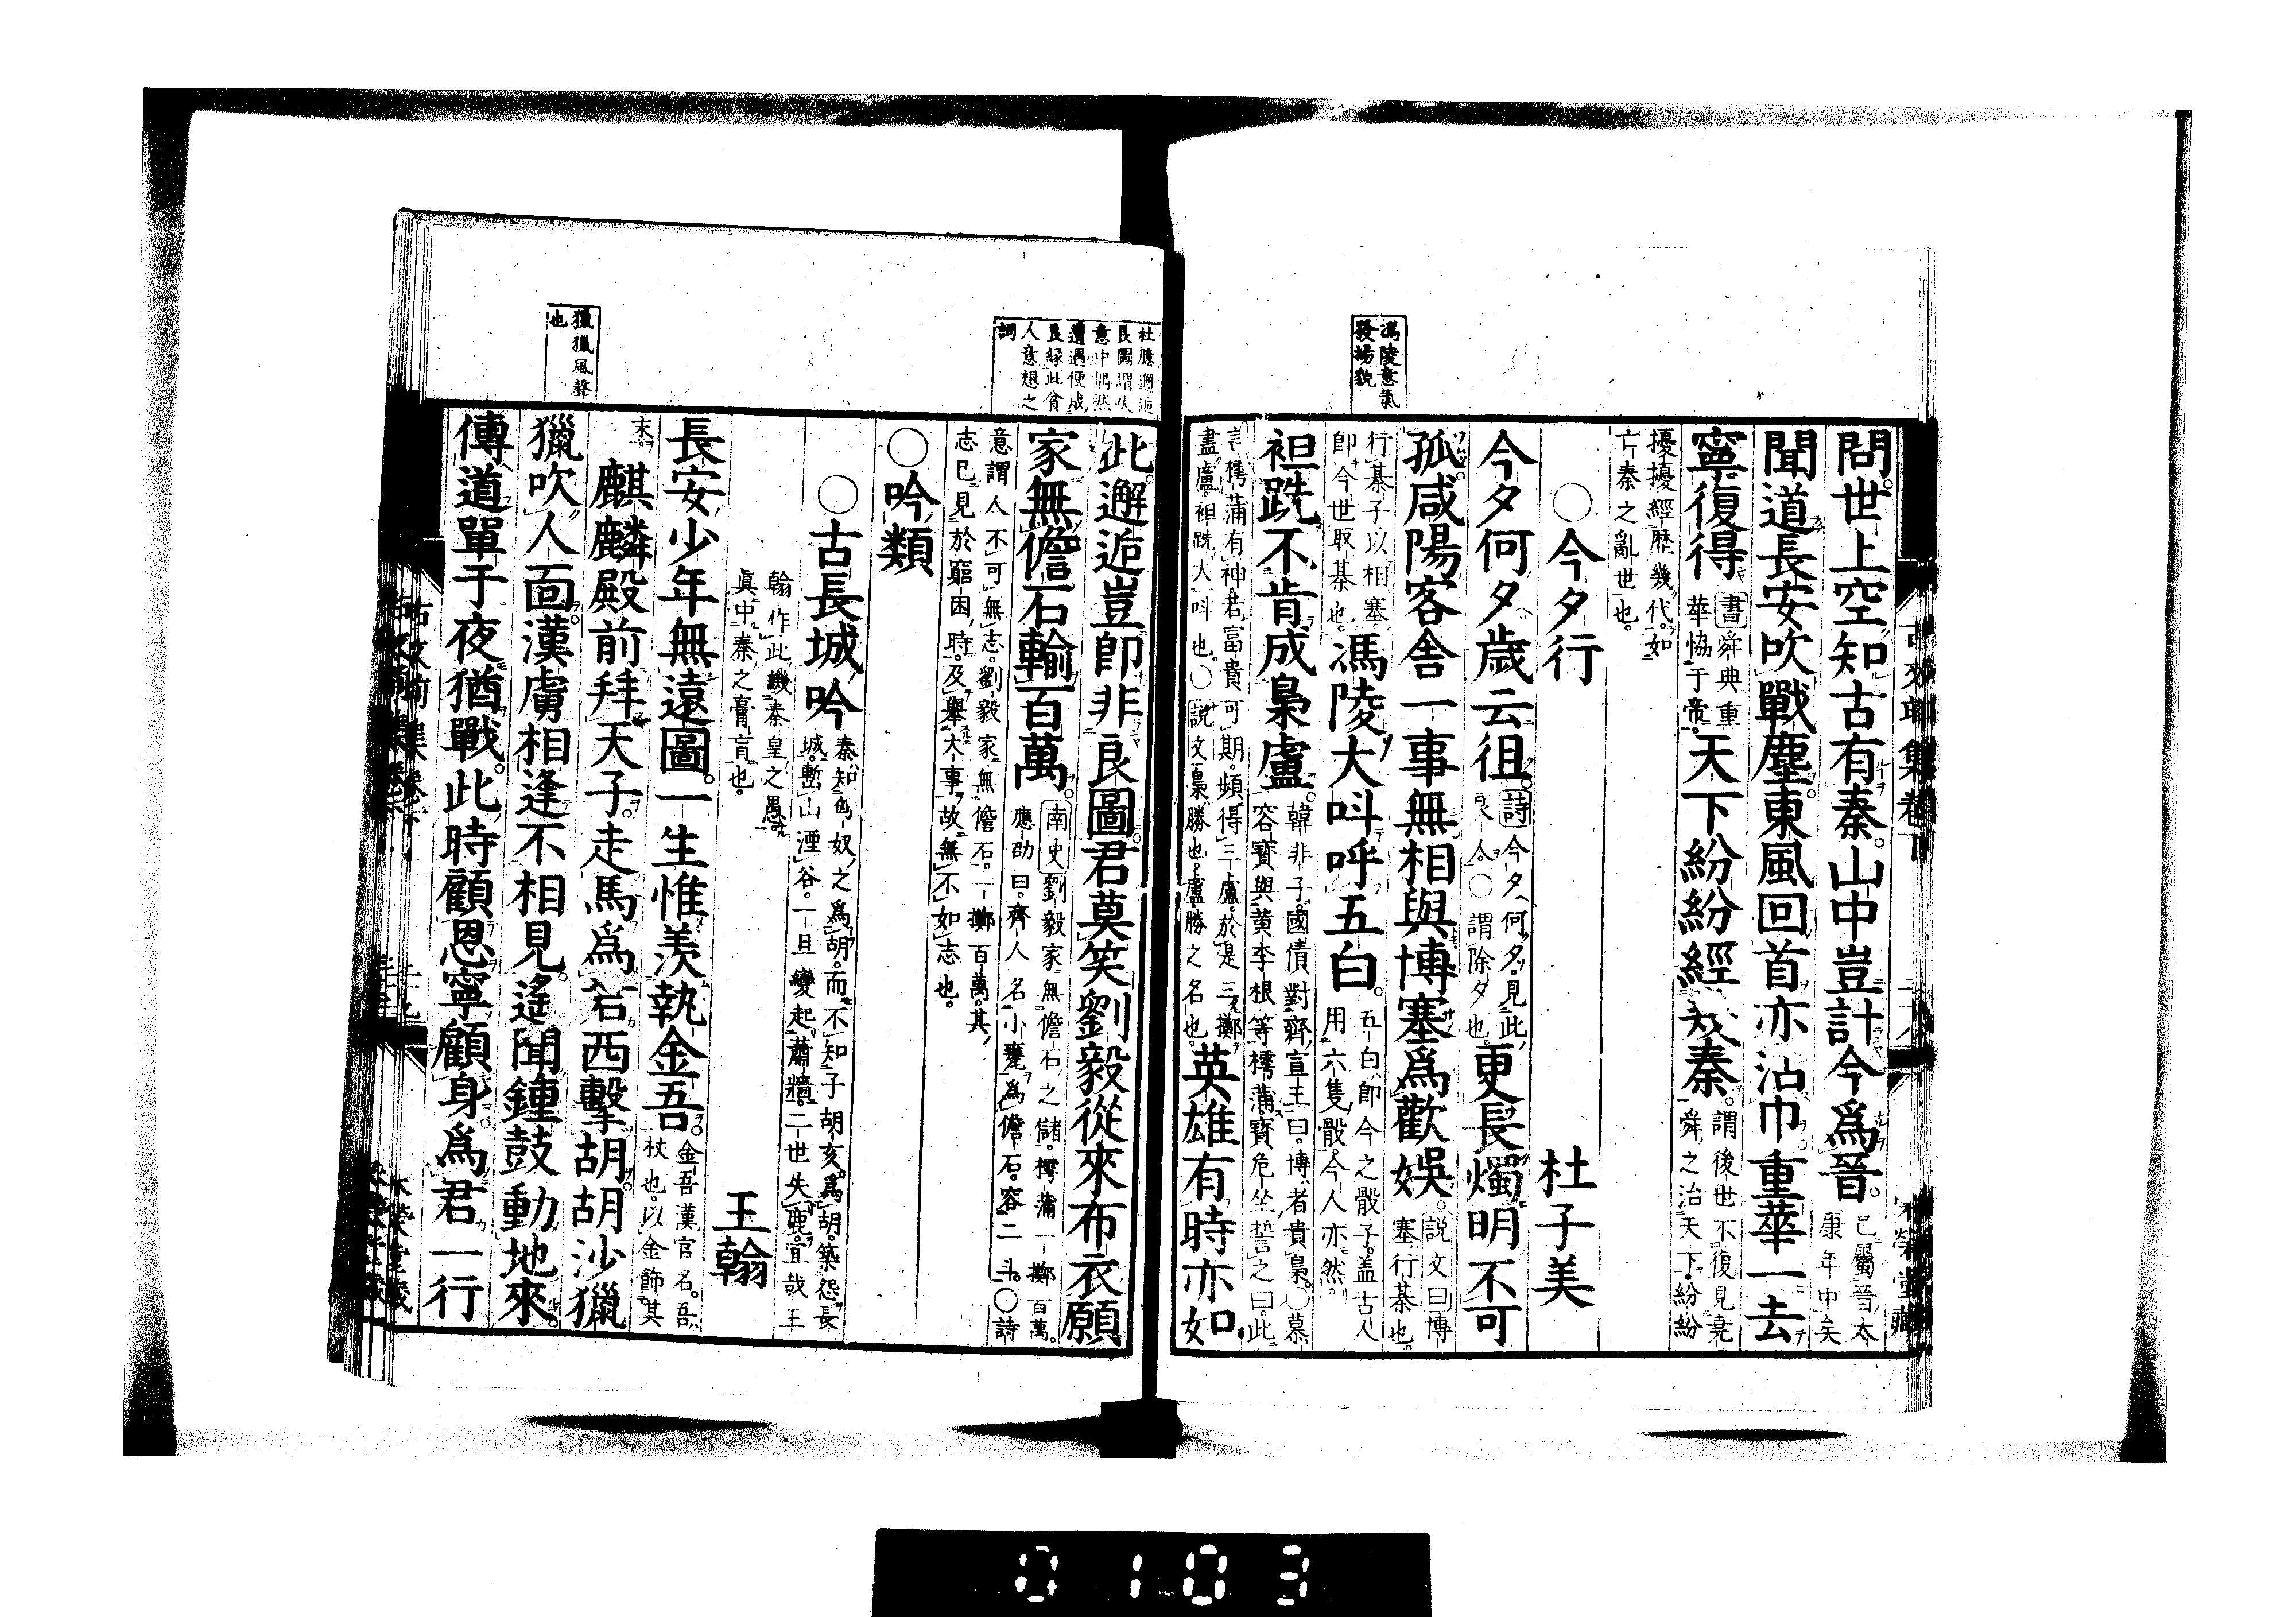 問。世上空知古有秦。山中豈計今爲晉。已屬晉太康年中矣
聞道長安吹戰塵。東風回首亦沾巾重華一去
寧復得書舜典重華協于帝。天下紛紛經幾秦。謂後世不復見堯舜之治天下紛紛
擾擾經歷幾代。如亡秦之亂世也。
○今夕行　杜子美
今夕何夕歲云徂。詩今夕何夕。見此良人。○謂除夕也。更長燭明不可
孤。咸陽客舍一事無相與博塞爲歡娛。說文曰博塞行棊也。
行棊子以相塞。即今世取棊也。馮陵大呌呼五白。五白即今之骰子。盖古人用六隻骰。今人亦然。
袒跣不肯成梟盧。韓非子。國債對齊宣王曰。博者貴梟。○慕容寶與黄李根等樗蒲。寶危坐誓之曰。此
言樗蒲有神。若富貴可期。頻得三盧。於是三擲盡盧。袒跣大呌也。○說文梟勝也。盧勝之名也。英雄有時亦如
馮陵意氣
發揚貌
此。邂逅豈即非良圖。君莫笑劉毅從來布衣願
家無儋石輸百萬。南史劉毅家無儋石之儲。樗蒲一擲百萬。應劭曰。齊人名小甕爲儋石。容二斗。○詩
意謂人不可無志。劉毅家無儋石。一擲百萬。其志已見於窮困時。及舉大事。故無不如志也。
○吟類
○古長城吟　秦知匈奴之爲胡。而不知子胡亥爲胡。築怨長城。塹山湮谷。一旦變起蕭牆。二世失鹿。宜哉王
翰作此譏秦皇之愚。眞中秦之膏肓也。　王翰
長安少年無遠圖。一生惟羨執金吾。金吾漢官名。吾杖也。以金飾其
末。麒麟殿前拜天子。走馬爲君西擊胡。胡沙獵
獵吹人面。漢虜相逢不相見。遙聞鍾鼓動地來。
傳道單于夜猶戰。此時顧恩寧顧身。爲君一行
杜臆邂逅
良圖謂失
意中偶然
遭遇便成
良緣此貧
人意想之
詞
獵獵風聲
也
0103